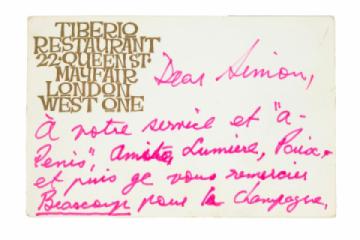 TIBERIO
RESTAURANT
22·QUEEN ST·
MAYFAIR
LONDON
WEST ONE
Dear Simon,
À votre service et "à-
Penis", Amitié, Lumière, Paix-
et puis je vous remercier
Beaucoup pour le champagne,